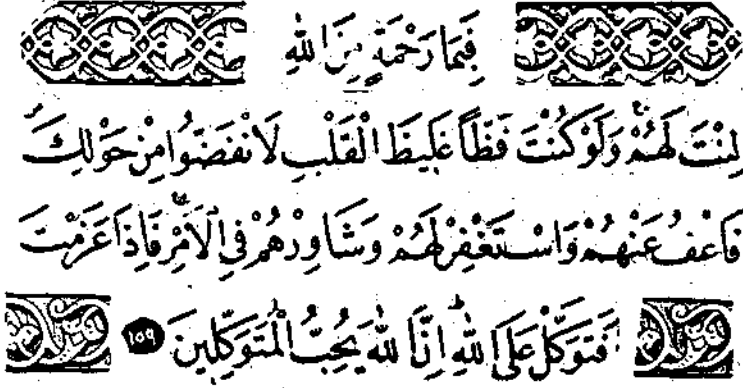 فَبِمَا رَحْمَةٍ مِنَ اللّٰهِ
لِنْتَ لَهُمْۚ وَلَوْ كُنْتَ فَظًّا غَلٖيظَ الْقَلْبِ لَانْفَضُّوا مِنْ حَوْلِكَۖ
فَاعْفُ عَنْهُمْ وَاسْتَغْفِرْ لَهُمْ وَشَاوِرْهُمْ فِي الْاَمْرِۚ فَاِذَا عَزَمْتَ
فَتَوَكَّلْ عَلَى اللّٰهِۜ اِنَّ اللّٰهَ يُحِبُّ الْمُتَوَكِّلٖينَ ١٥٩